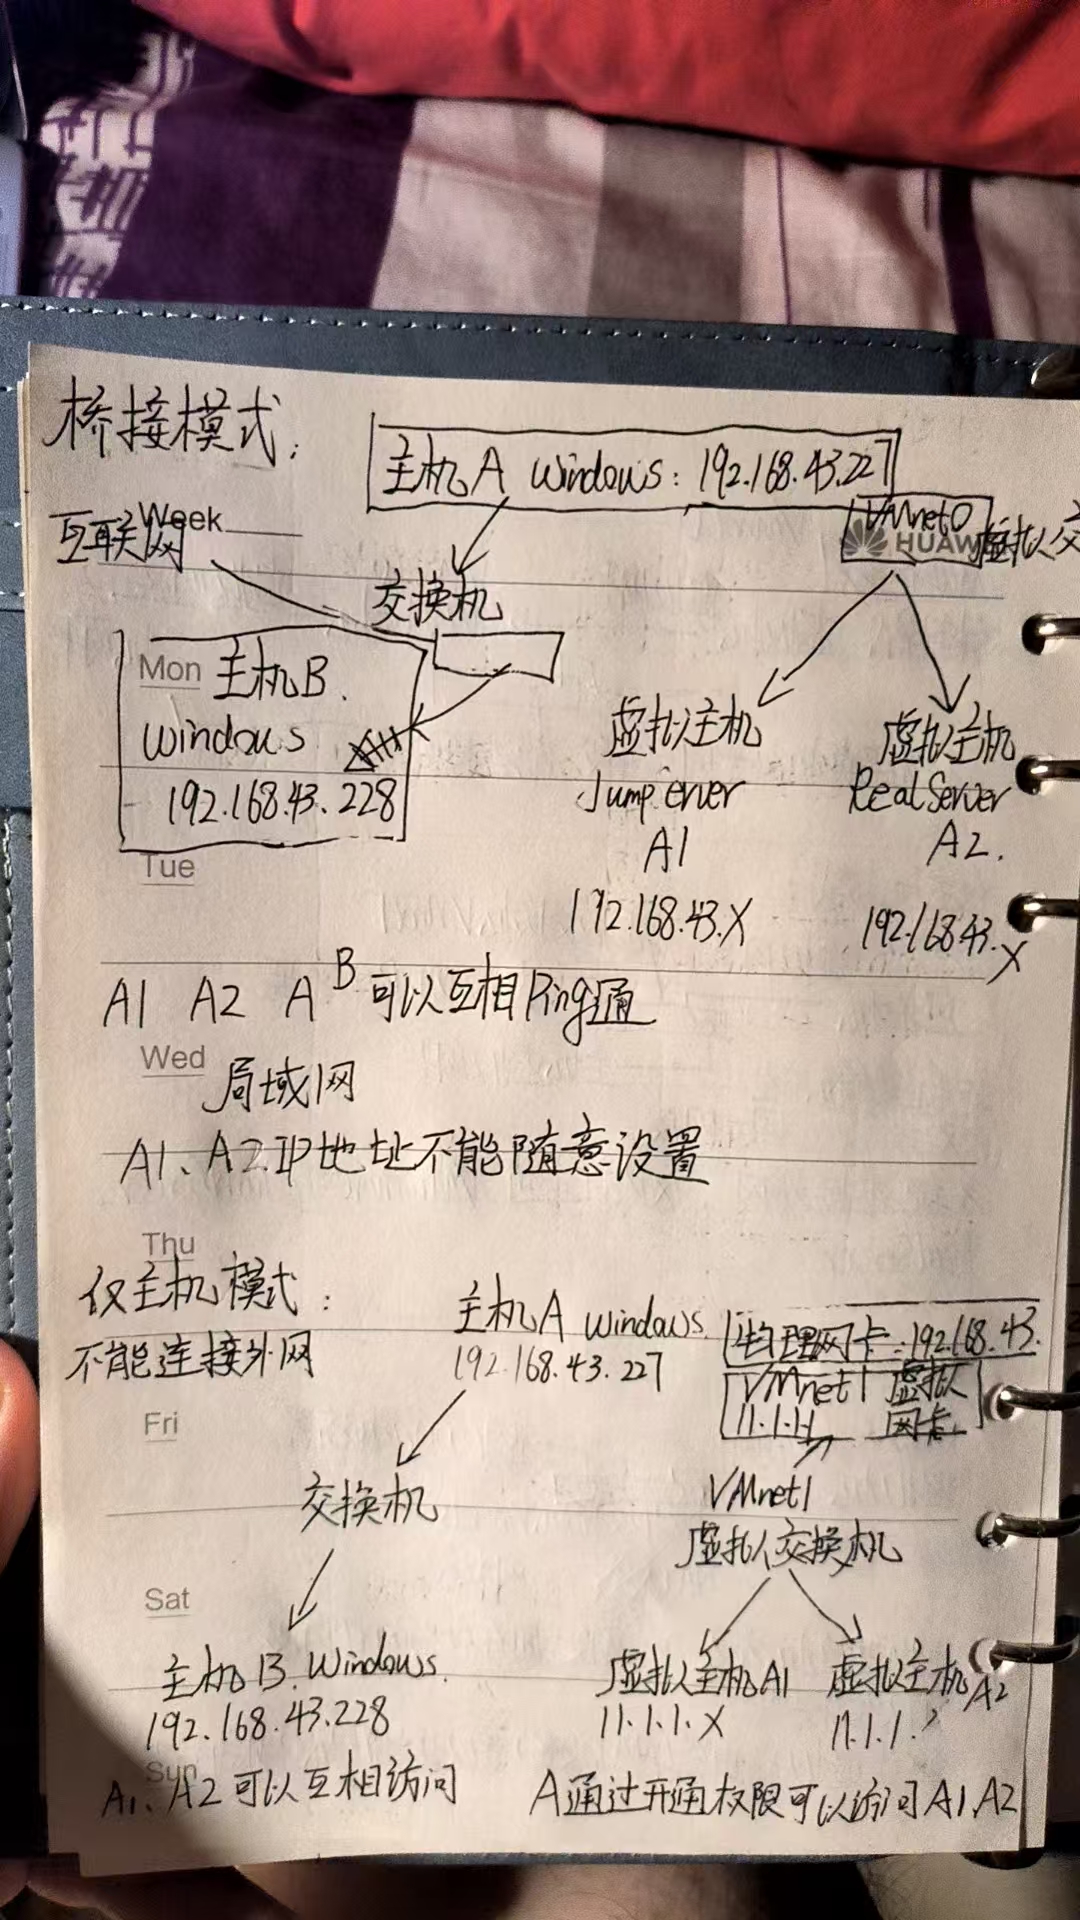 桥接模式:
主机A Windows: 192.168.43.227
Week
互联网
VMnet0
HUAW
虚拟交
交换机
Mon 主机B.
windows
192.168.43.228
虚拟主机
Jumperver
A1
192.168.43.X
虚拟主机
RealServer
A2.
192.168.43.X
Tue
A1 A2 A B 可以互相Ping通
Wed
局域网
A1、A2.IP地址不能随意设置
Thu
仅主机模式:
不能连接外网
主机A windows
192.168.43.227
物理网卡:192.168.43.
VMnet1 虚拟
11.1.1.1 网卡
Fri
交换机
VMnet1
虚拟交换机
Sat
主机B.Windows
192.168.43.228
虚拟主机A1
11.1.1.X
虚拟主机A2
11.1.1.
Sun
A1、A2可以互相访问
A通过开通权限可以访问A1.A2